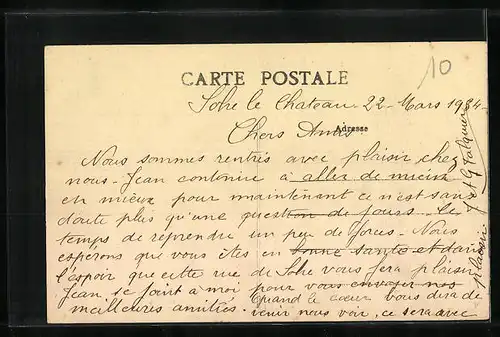 10
CARTE POSTALE
Solre le Chateau 22 Mars 1934
Adresse
Chers Amis
Nous sommes rentrés avec plaisir chez
nous - Jean continue à aller de mieux
en mieux pour maintenant ce n'est sans
doute plus qu'une question de jours le
temps de reprendre un peu de forces - Nous
espérons que vous êtes en bonne santé et dans
l'espoir que cette vue de Solre vous fera plaisir
Jean se joint à moi pour vous envoyer nos
meilleures amitiés. Quand le cœur vous dira de
venir nous voir, ce sera avec
plaisir